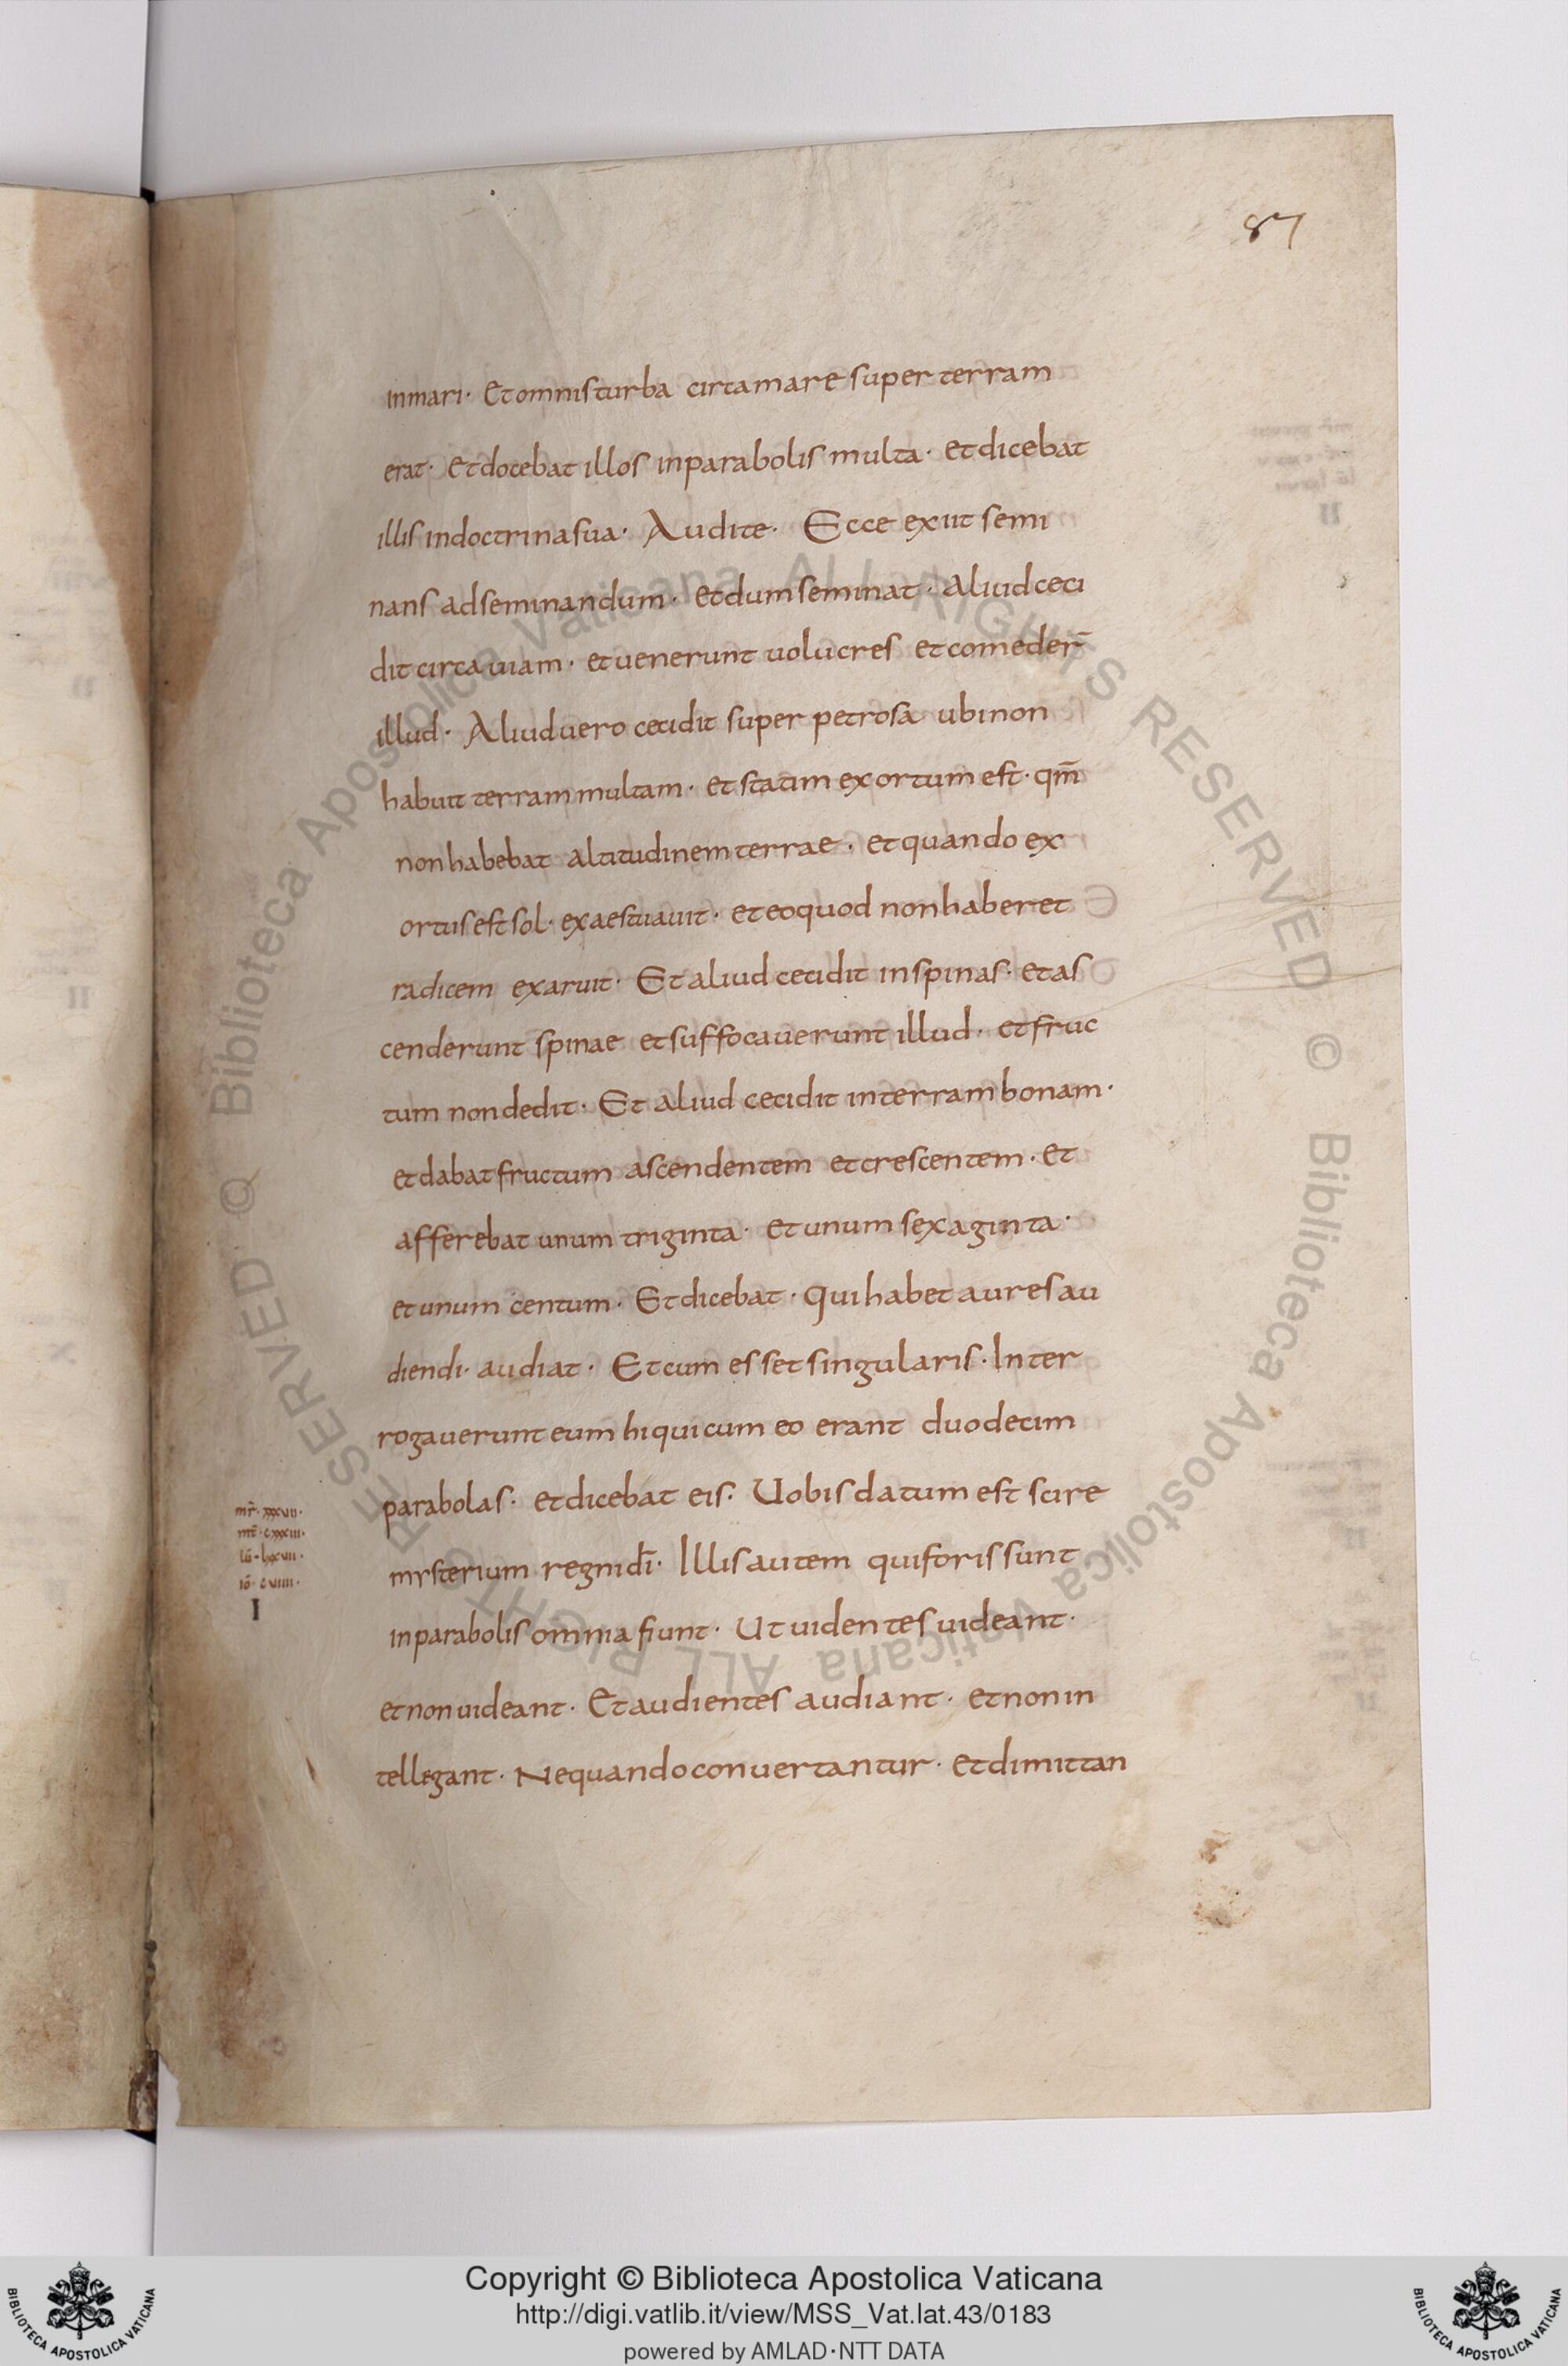 87
in mari · Et omnis turba circa mare super terram
erat · Et docebat illos in parabolis multa · Et dicebat
illis in doctrina sua · Audite · Ecce exiit semi
nans ad seminandum · Et dum seminat · Aliud ceci
dit circa uiam · et uenerunt uolucres et comeder̄
illud · Aliud uero cecidit super petrosa ubi non
habuit terram multam · et statim exortum est · qm̄
non habebat altitudinem terrae · et quando ex
ortus est sol · exaestuauit · et eo quod non haberet
radicem exaruit · Et aliud cecidit in spinas · et as
cenderunt spinae et suffocauerunt illud · et fruc
tum non dedit · Et aliud cecidit in terram bonam ·
et dabat fructum ascendentem et crescentem · Et
afferebat unum triginta · Et unum sexaginta ·
et unum centum · Et dicebat · Qui habet aures au
diendi · audiat · Et cum esset singularis · Inter
rogauerunt eum hi qui cum eo erant duodecim
parabolas · et dicebat eis · Uobis datum est scire
mysterium regni dī · Illis autem qui foris sunt
in parabolis omnia fiunt · Ut uidentes uideant ·
et non uideant · Et audientes audiant · et non in
tellegant · Nequando conuertantur · Et dimittan
mr̄ · xxxvii ·
mt̄ · cxxxiii ·
lū · lxxvii ·
iō · cviiii ·
I
© Biblioteca Apostolica Vaticana ALL RIGHTS RESERVED © Biblioteca Apostolica Vaticana ALL RIGHTS RESERVED
Copyright © Biblioteca Apostolica Vaticana
http://digi.vatlib.it/view/MSS_Vat.lat.43/0183
powered by AMLAD·NTT DATA
BIBLIOTECA APOSTOLICA VATICANA
BIBLIOTECA APOSTOLICA VATICANA